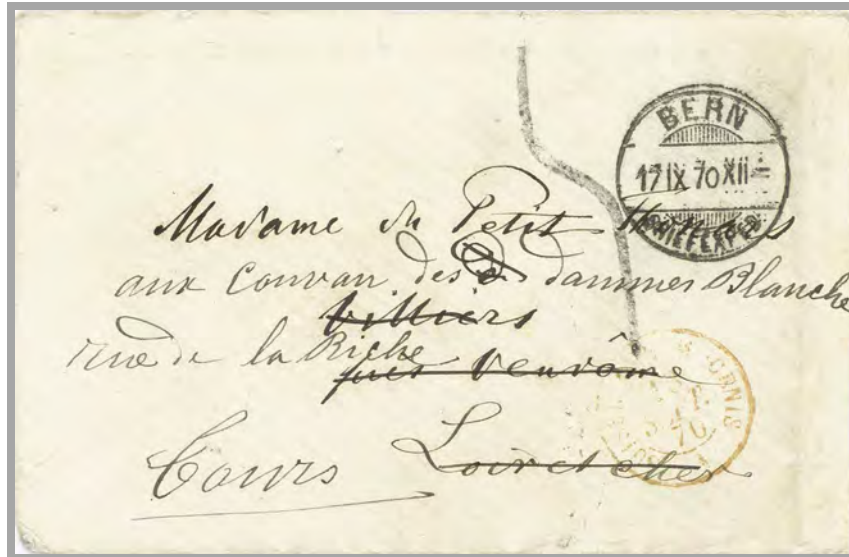 BERN
17 IX 70 XII
BRIEFEXPED.
Madame du Petit Thouars
aux Convan des dammes Blanche
Villiers
rue de la Riche
près Vendôme
Tours Loir et cher
CENIS
70